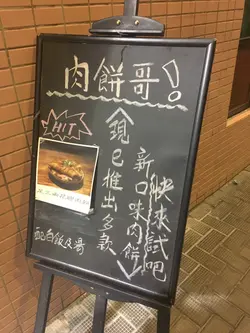 肉餅哥!
HIT
現已推出多款
新口味肉餅
快來試吧
配白飯及湯